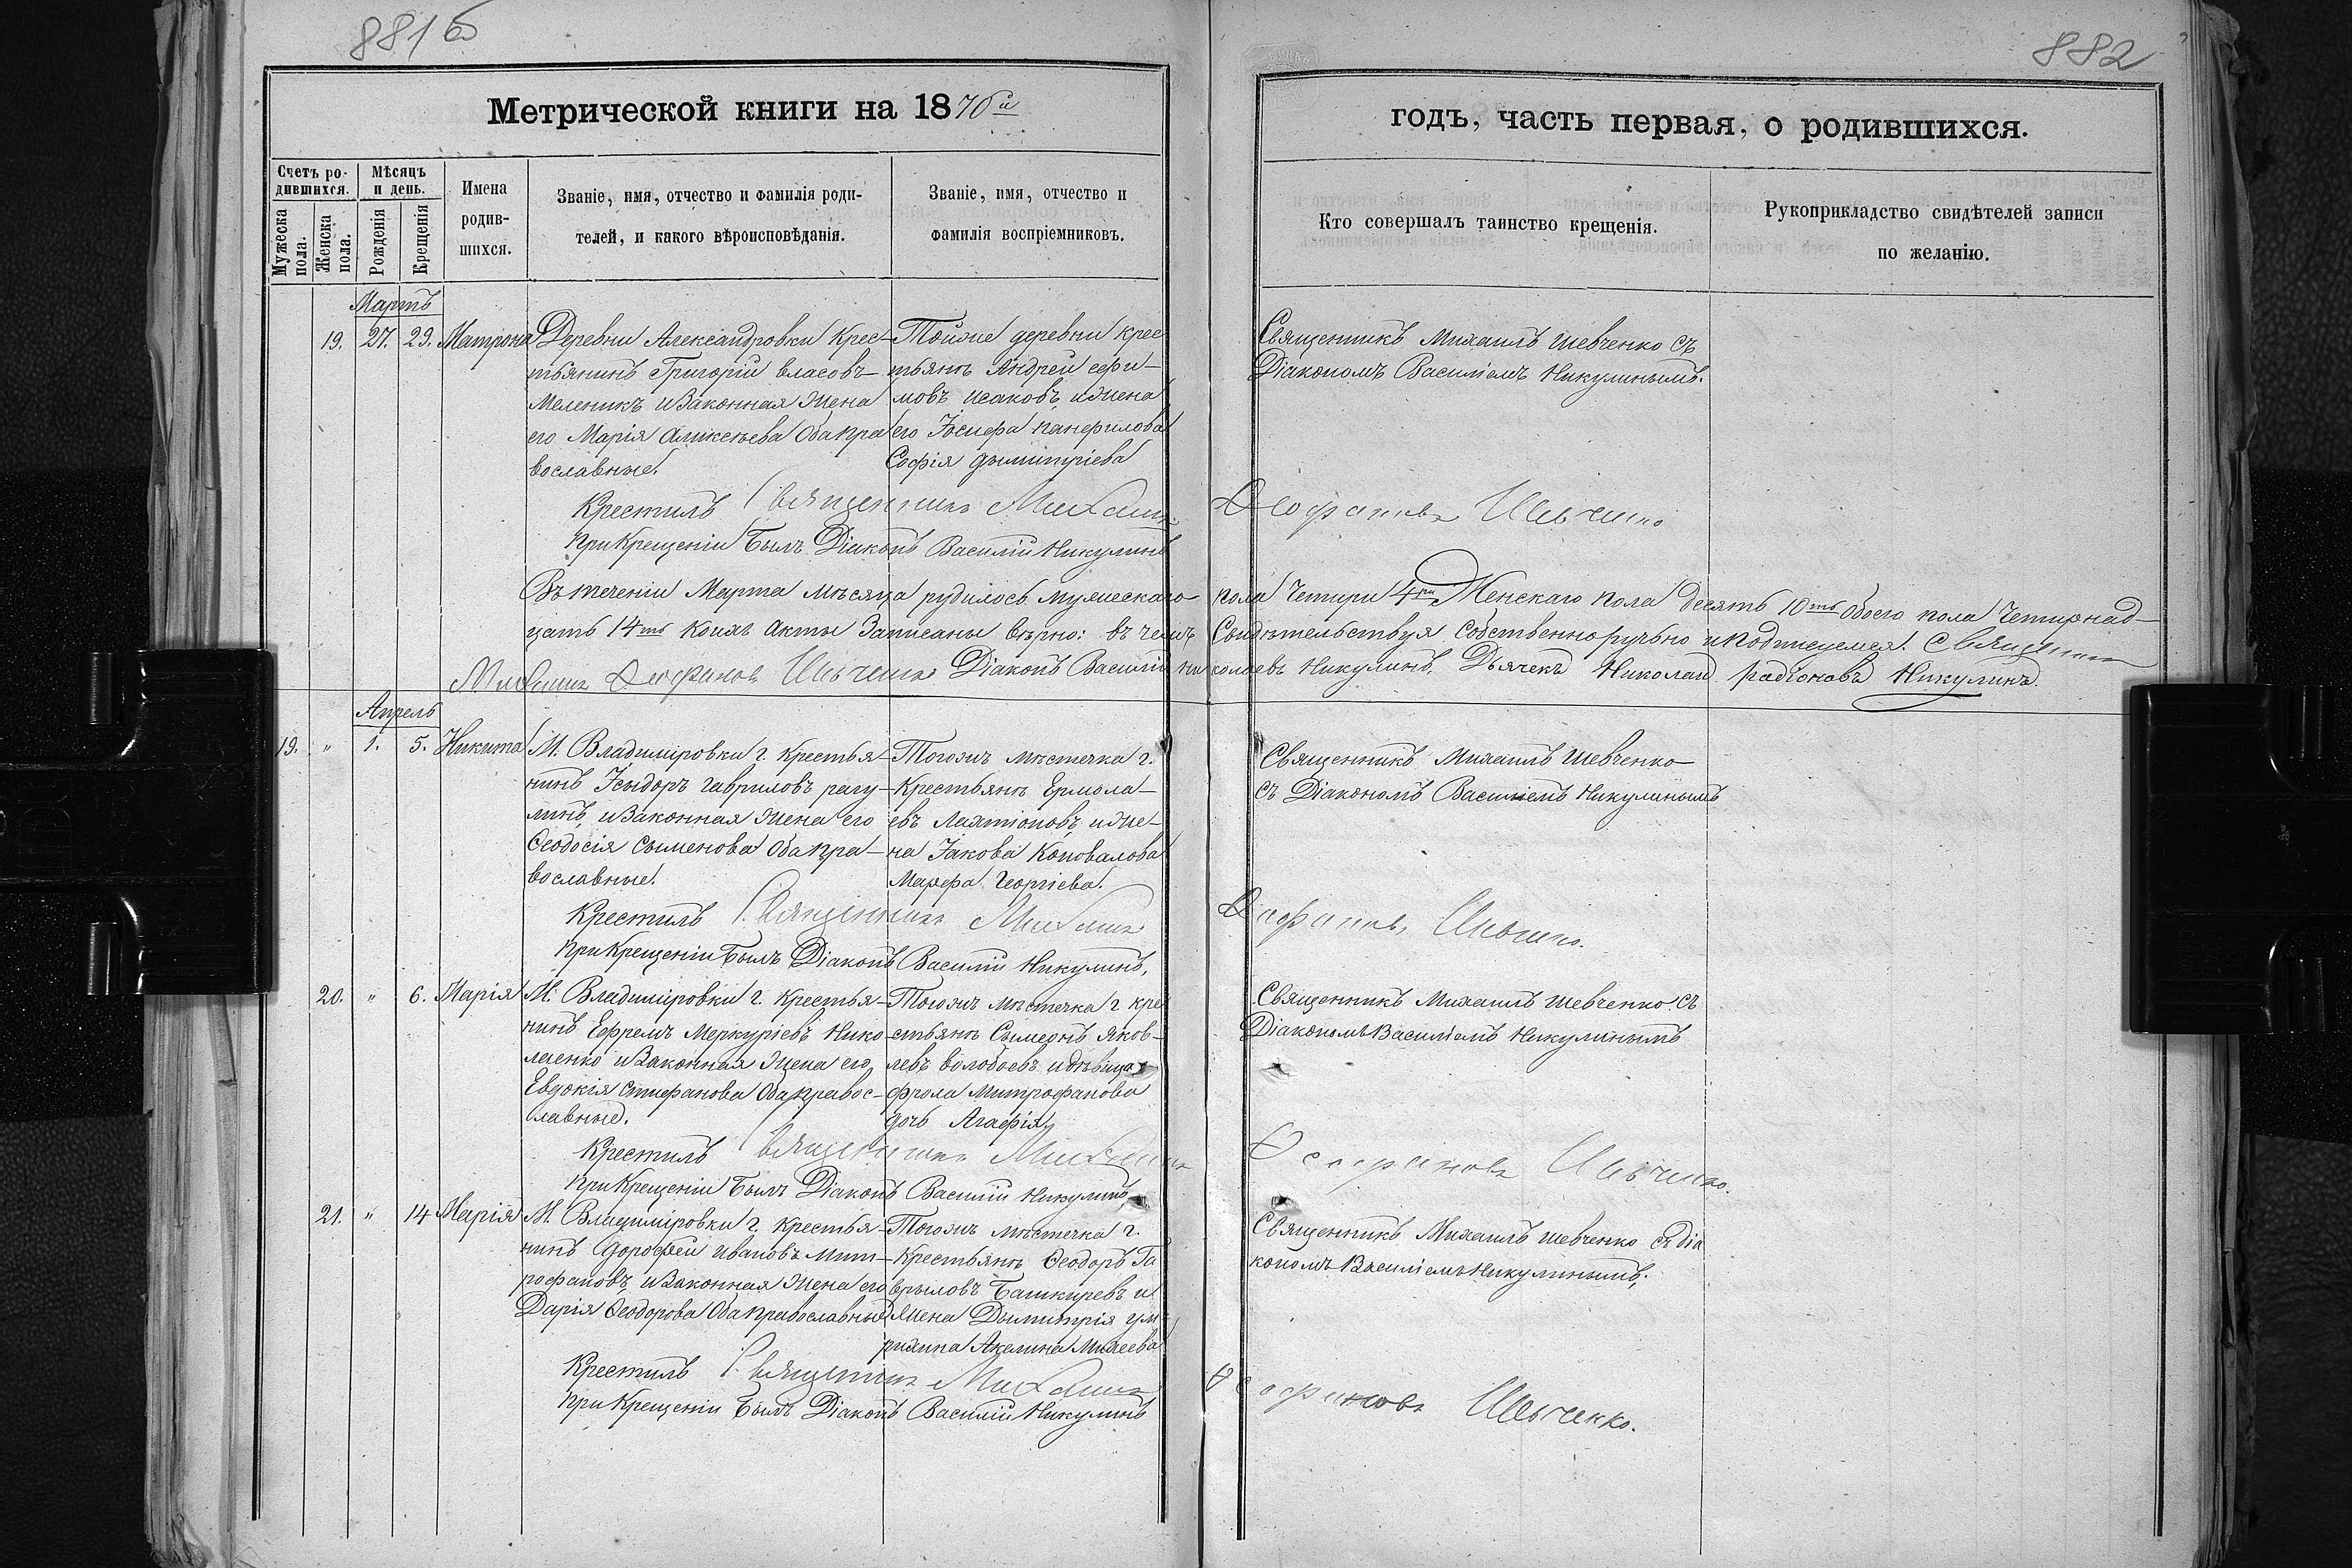 881б
882
Метрической книги на 1870й
годъ, часть первая, о родившихся.
Счетъ родившихся.
Мужеска пола.
Женска пола.
Мѣсяцъ и день.
Рожденія
Крещенія
Имена родив-
шихся.
Званіе, имя, отчество и фамилія роди-
телей, и какого вѣроисповѣданія.
Званіе, имя, отчество и
фамилія воспріемниковъ.
Кто совершалъ таинство крещенія.
Рукоприкладство свидѣтелей записи
по желанію.
Мартъ
19. 27. 29. Матрона
Деревни Александровки Крес-
тьянинъ Григорій власовъ
Меленикъ и Законная Жена
его Марія Аликсѣева Оба пра
вославные.
Тойже деревни крес
тьянъ Андрей ефи-
мовъ исаковъ, и жена
его Іосифа панфилова
Софія дымитріева
Священникъ Михаилъ Шевченко съ
Діакономъ Василіемъ Никулинымъ.
Крестилъ Священникъ Михаилъ Ѳеофановъ Шевченко
При Крещеніи Былъ Діаконъ Василій Никулинъ
Въ теченіи Марта мѣсяца рудилось мужескаго пола Четири 4ри Женскаго пола десять 10ть обоего пола Четирнад-
цать 14ть коихъ акты Записаны вѣрно: въ чемъ Свидѣтельствуя Собственноручьно и подписуемся. Священник
Михаилъ Ѳеофановъ Шевченко Діаконъ Василій николаевъ Никулинъ, Дьячекъ Николай радіоновъ Никулинъ.
Апрель
19. " 1. 5. Никита
М. Владиміровки г. Крестья
нинъ Ісыдоръ гавриловъ рагу-
линъ, и Законная Жена его
Ѳеодосія Сыменова Оба пра-
вославные.
Тогожъ мѣстечка г.
Крестьянъ Ермола-
евъ Лактіоновъ, и Же-
на Іакова Коновалова
Марфа Георгіева.
Священникъ Михаилъ Шевченко
съ Діакономъ Василіемъ Никулинымъ
Крестилъ Священникъ Михаилъ Ѳеофановъ Шевченко.
При Крещеніи Былъ Діаконъ Василій Никулинъ,
20. " 6. Марія
М. Владиміровки г. Крестья-
нинъ Ефремъ Меркуріевъ Нико
лаенко и Законная Жена его
Евдокія Стифанова Оба правос-
лавные.
Тогожъ мѣстечка г. кре
стьянъ Сымеонъ Яков-
левъ волобоевъ и дѣвица
фрола Митрофанова
дочь Агафія,
Священникъ Михаилъ Шевченко съ
Діакономъ Василіемъ Никулинымъ
Крестилъ Священникъ Михаилъ Ѳеофановъ Шевченко.
При Крещеніи Былъ Діаконъ Василій Никулинъ,
21. " 14 Марія
М. Владиміровки г. крестья
нинъ Дорофей ивановъ мит-
рофановъ, и Законная Жена его
Дарія Ѳеодорова Оба православные
Тогожъ мѣстечка г.
Крестьянъ Ѳеодоръ Га
врыловъ Башкиревъ и
Жена Дымитрія
Акелина Михеева
Священникъ Михаилъ Шевченко съ діа
кономъ Василіемъ Никулинымъ,
Крестилъ Священникъ Михаилъ Ѳеофановъ Шевченко.
При Крещеніи Былъ Діаконъ Василій Никулинъ